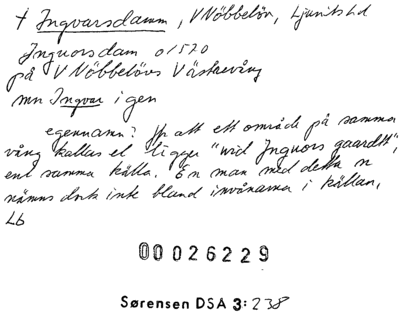 † Ingvarsdamm, V Nöbbelöv, Ljunits hd
Inguorsdam o/1570
på V Nöbbelövs Västravång
mn Ingvar i gen
egennamn? Jfr att ett område på samma
vång kallas el. ligger "wid Inguors gaardtt",
enl samma källa. En man med detta n
nämns dock inte bland invånarna i källan.
Lb
00026229
Sørensen DSA 3:238